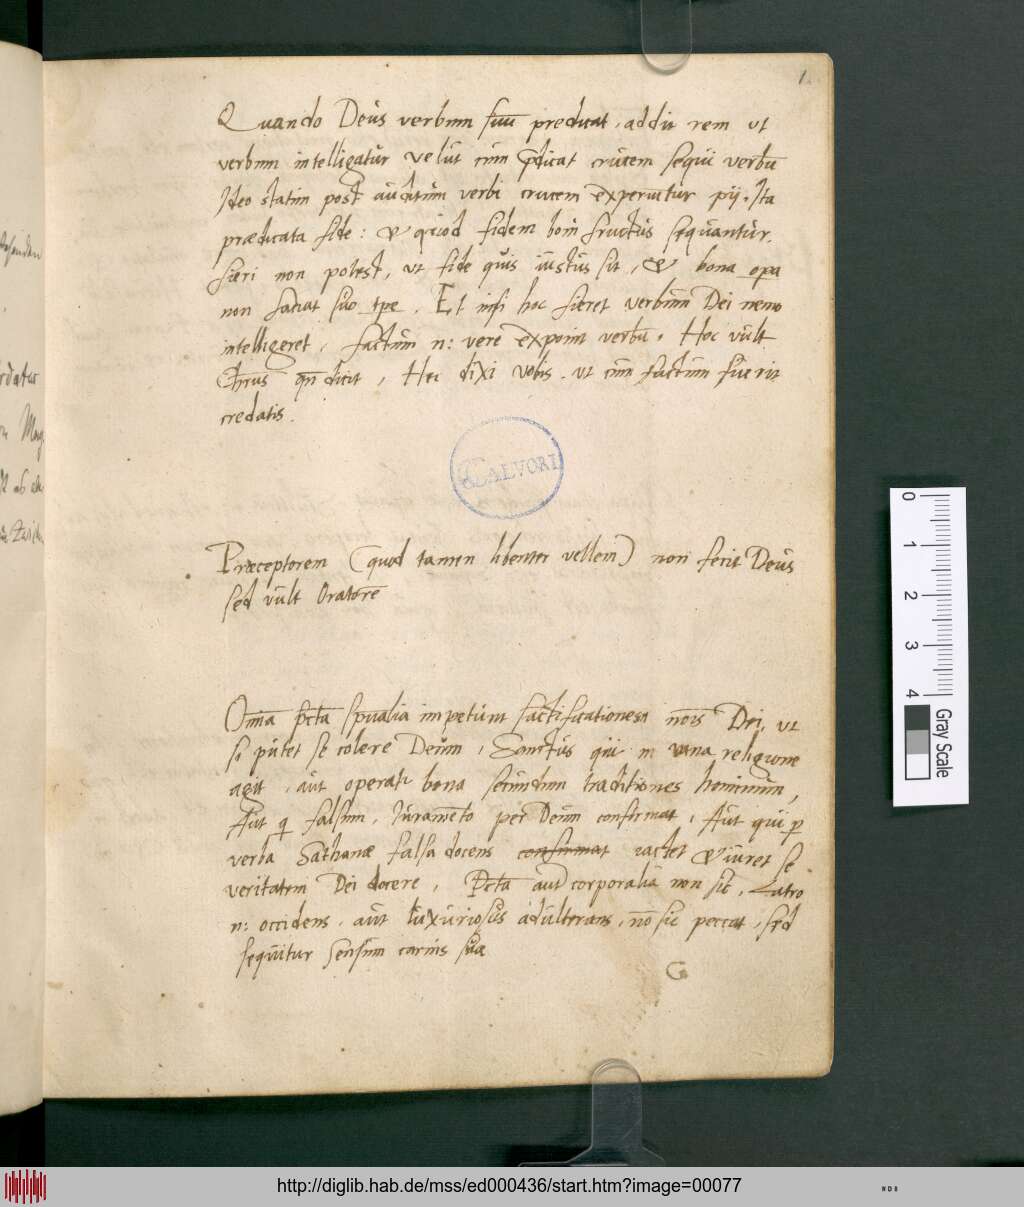 1.
Quando Deus verbum suū predicat, addit rem ut
verbum intelligatur velut cum p̄dicat crucem sequi verbū
Ideo statim post auditum verbi crucem experiuntur pij. Ita
prædicata fide: & quod fidem boni fructus sequantur.
fieri non potest, ut fide quis iustus sit, & bona opa
non faciat suo tpe. Et nisi hoc fieret verbum Dei nemo
intelligeret, factum n: vere exponit verbū. Hoc vult
Chrūs qn̄ dicit, Hec dixi vobis. ut cum factum fuerit
credatis.
CALVORI
Præceptorem (quod tamen libenter vellem) non ferit Deus
sed vult Oratorē
Om̄ia pctā spūalia impetunt factificationem nōis Dei, ut
si putet se colere Deum, Sanctus qui in vana religione
agit, aut operatr bona secundum traditiones hominum,
Aut q falsum, Iuramēto per Deum confirmat, Aut qui p
verba Sathanæ falsa docens confirmat iactet & iuret se
veritatem Dei docere, Pctā aut corporalia non sic, Latro
n: occidens, aut luxuriosus adulterans, nō sic peccat, sed
sequitur sensum carnis suæ
G
0
1
2
3
4
Gray Scale
http://diglib.hab.de/mss/ed000436/start.htm?image=00077